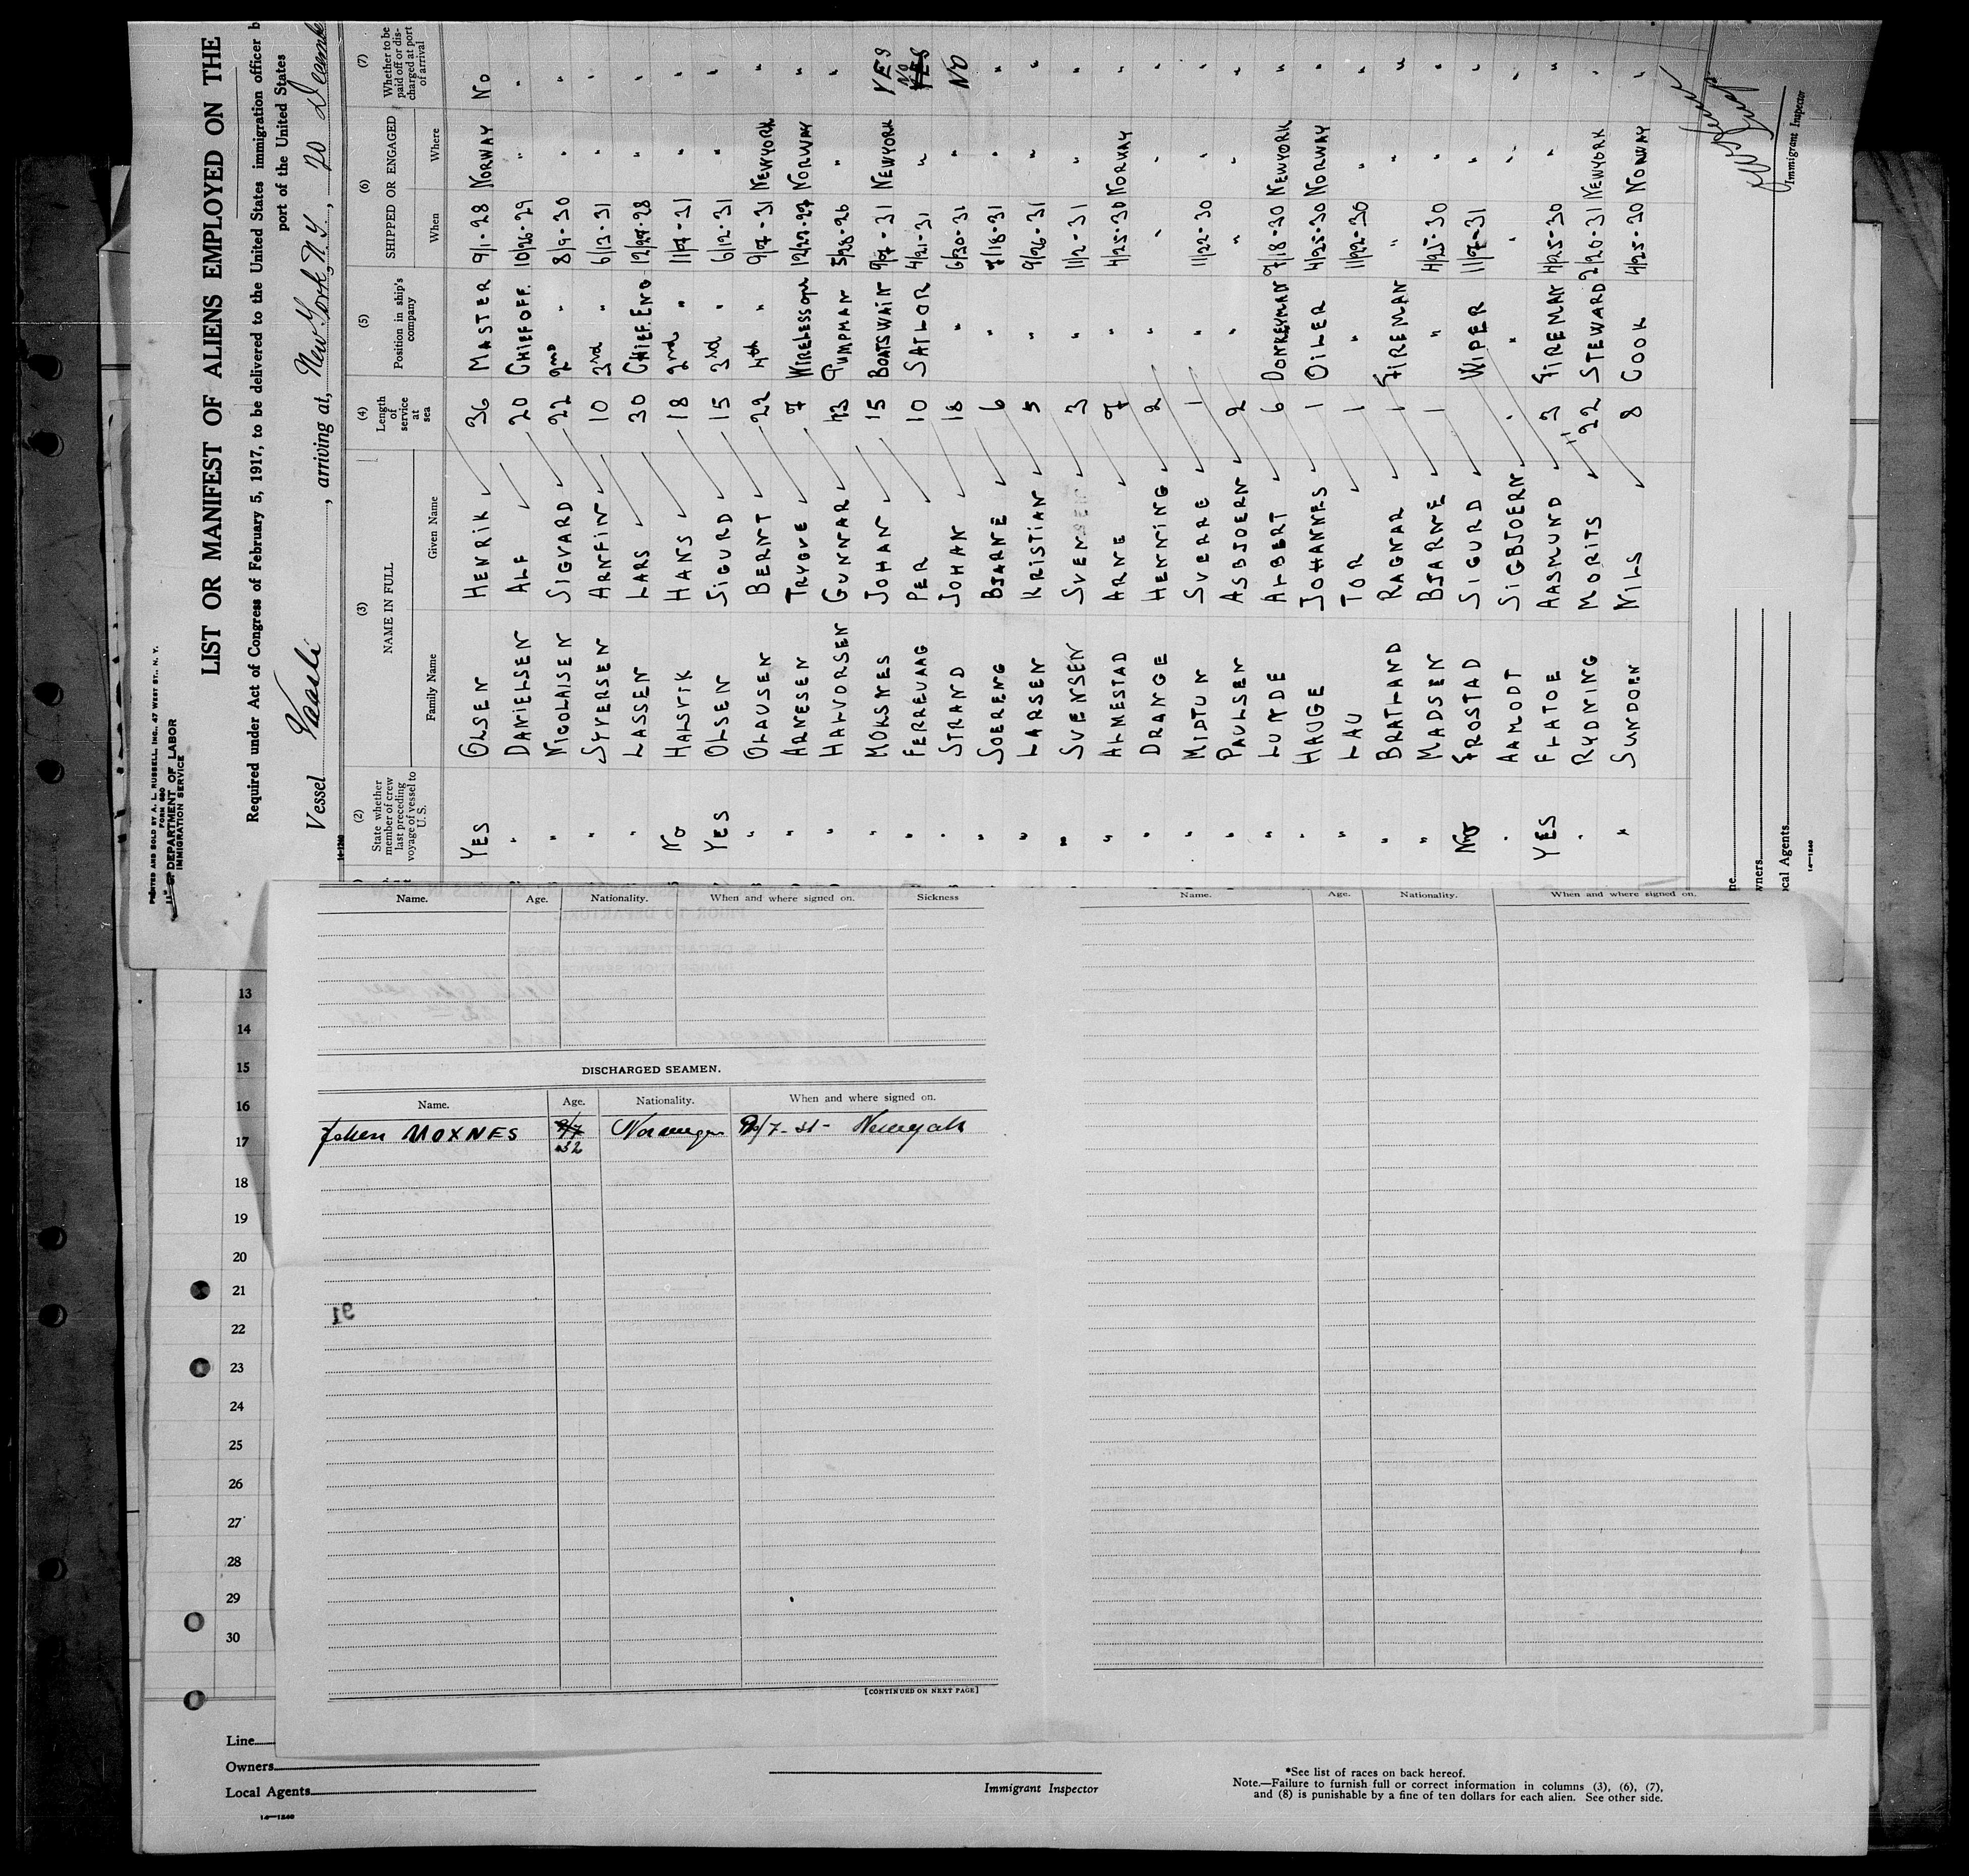 PRINTED AND SOLD BY A. L. RUSSELL, INC., 47 WEST ST., N. Y.
FORM 680
U. S. DEPARTMENT OF LABOR
IMMIGRATION SERVICE
LIST OR MANIFEST OF ALIENS EMPLOYED ON THE
Required under Act of Congress of February 5, 1917, to be delivered to the United States immigration officer b
port of the United States
Vessel Vaarli, arriving at, New York, N.Y., 20 Decembe
(2) (3) (4) (5) (6) (7)
State whether member of crew last preceding voyage of vessel to U. S. NAME IN FULL Length of service at sea Position in ship's company SHIPPED OR ENGAGED Whether to be paid off or discharged at port of arrival
Family Name Given Name When Where
YES OLSEN HENRIK 36 MASTER 9/1-28 NORWAY NO
" DANIELSEN ALF 20 CHIEF OFF. 10/26-29 " "
" NICOLAISEN SIGVARD 22 2nd " 8/9-30 " "
" SYVERSEN ARNFIN 10 3rd " 6/13-31 " "
" LASSEN LARS 30 CHIEF. ENG 12/29-28 " "
NO HALSVIK HANS 18 2nd " 11/7-31 " "
YES OLSEN SIGURD 15 3rd " 6/12-31 " "
" OLAUSEN BERNT 22 4th " 9/7-31 NEWYORK "
" ARNESEN TRYGVE 7 WIRELESS opr 12/27-27 NORWAY "
" HALVORSEN GUNNAR 43 PUMPMAN 5/28-26 " "
" MOKSNES JOHAN 15 BOATSWAIN 9/7-31 NEWYORK YES
" FERREVAAG PER 10 SAILOR 4/21-31 " NO YES
. STRAND JOHAN 18 " 6/30-31 " NO
" SOERENG BJARNE 6 " 7/18-31 " "
" LARSEN KRISTIAN 5 " 9/26-31 " "
" SVENSEN SVEN 3 " 11/2-31 " "
" ALMESTAD ARNE 7 " 4/25-30 NORWAY "
" DRANGE HENNING 2 " " " "
" MIDTUN SVERRE 1 " 11/22-30 " "
" PAULSEN ASBJOERN 2 " " " "
" LUNDE ALBERT 6 DONKEYMAN 7/18-30 NEWYORK "
" HAUGE JOHANNES 1 OILER 4/25-30 NORWAY "
" LAU TOR 1 " 11/22-30 " "
" BRATLAND RAGNAR 1 FIREMAN " " "
" MADSEN BJARNE 1 " 4/25-30 " "
NO FROSTAD SIGURD WIPER 11/7-31 " "
. AAMODT SIGBJOERN . " . " "
YES FLATOE AASMUND 3 FIREMAN 4/25-30 " "
. RYDNING MORITS 22 STEWARD 2/20-31 NEWYORK "
" SUNDOEN NILS 8 COOK 4/25-30 NORWAY "
Immigrant Inspector
ne
wners
cal Agents
14—1240
Name. Age. Nationality. When and where signed on. Sickness
DISCHARGED SEAMEN.
Name. Age. Nationality. When and where signed on.
Johan MOXNES 9/7 32 Norwegn 9/7-31- Newyork
[CONTINUED ON NEXT PAGE]
Name. Age. Nationality. When and where signed on.
13
14
15
16
17
18
19
20
21
22
23
24
25
26
27
28
29
30
Line
Owners
Local Agents
14—1240
Immigrant Inspector
*See list of races on back hereof.
Note.—Failure to furnish full or correct information in columns (3), (6), (7),
and (8) is punishable by a fine of ten dollars for each alien. See other side.